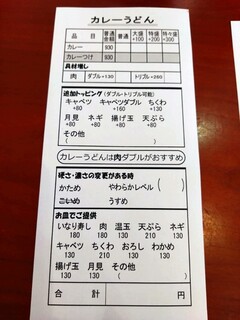 カレーうどん
品 目 普通金額 普通 大盛+100 特盛+200 特々盛+300
カレー 930
カレーつけ 930
具材増し
肉 ダブル+130 トリプル+260
追加トッピング(ダブル・トリプル可能)
キャベツ キャベツダブル ちくわ
+80 +160 +130
月見 ネギ +揚げ玉 天ぷら ネギ
+80
その他( )
カレーうどんは肉ダブルがおすすめ
硬さ・濃さの変更がある時
かため やわらかレベル( )
こいめ うすめ
お皿でご提供
いなり寿し 肉 温玉 天ぷら ネギ
180 180 130 210 130
キャベツ ちくわ おろし わかめ
130 130 130 130
揚げ玉 月見 その他( )
130
合 計 円